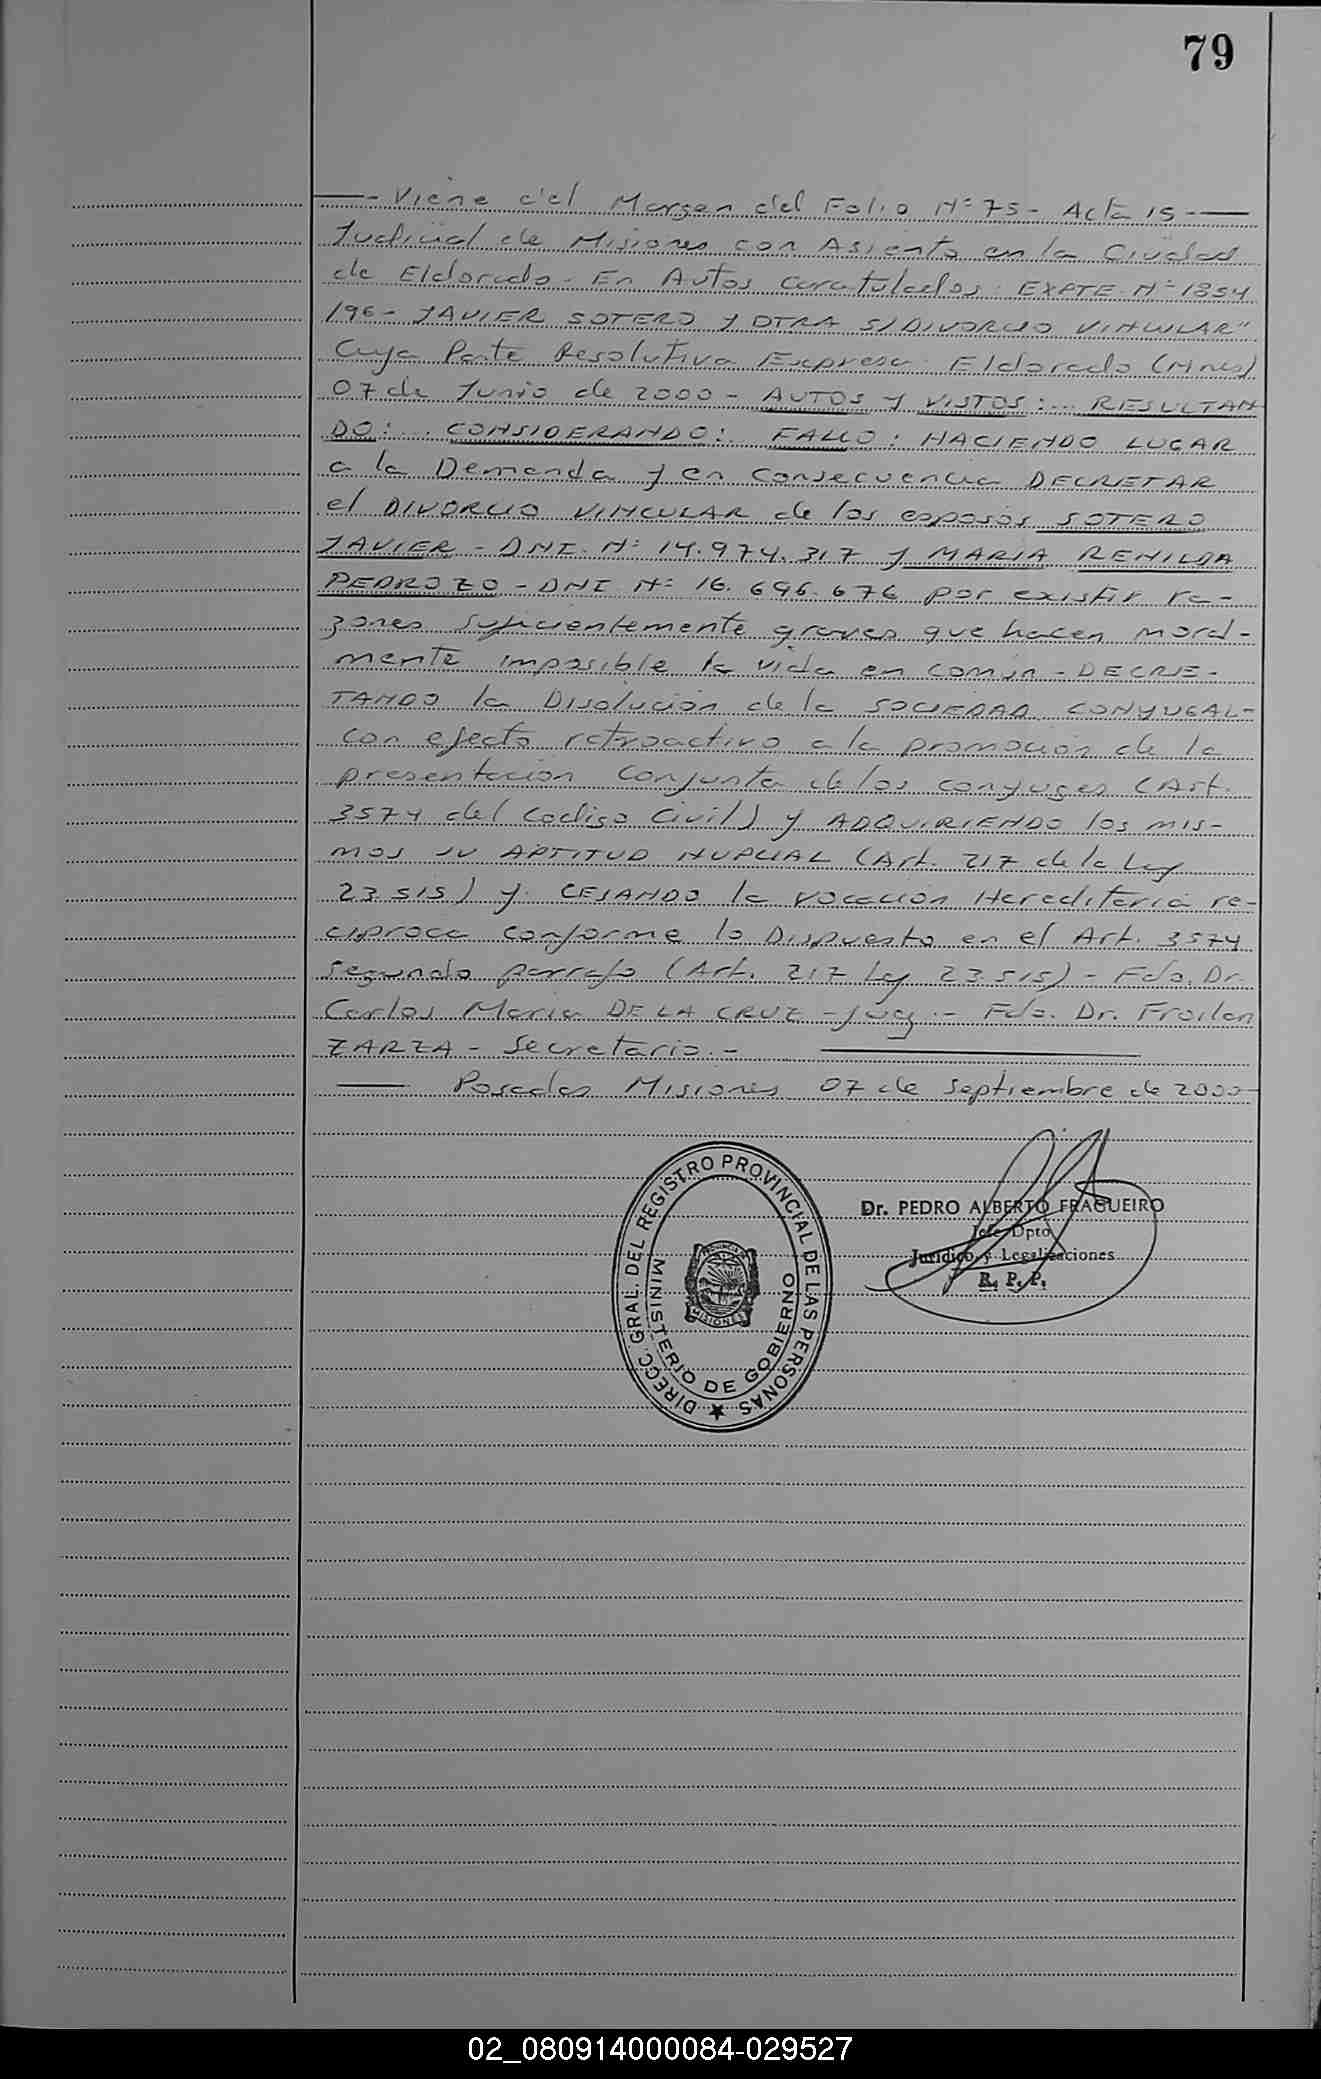 79
- Viene del Margen del Folio Nº 75 - Acta 15 -
Judicial de Misiones con Asiento en la Ciudad
de Eldorado - En Autos Caratulados: EXPTE Nº 1854
/96 - JAVIER SOTERO Y OTRA S/DIVORCIO VINCULAR"
Cuya Parte Resolutiva Expresa: Eldorado (Mnes)
07 de Junio de 2000 - AUTOS Y VISTOS:... RESULTAN
DO:... CONSIDERANDO:. FALLO: HACIENDO LUGAR
a la Demanda y en Consecuencia DECRETAR
el DIVORCIO VINCULAR de los esposos SOTERO
JAVIER - DNI. Nº 14.974.317 y MARIA REMILDA
PEDROZO - DNI Nº 16.696.676 por existir ra-
zones suficientemente graves que hacen moral-
mente imposible la vida en común - DECRE-
TANDO la Disolución de la SOCIEDAD CONYUGAL-
con efecto retroactivo a la promoción de la
presentación Conjunta de los conyuges (Art.
3574 del Codigo Civil) y ADQUIRIENDO los mis-
mos su APTITUD NUPCIAL (Art. 217 de la Ley
23515) y CESANDO la vocación Hereditaria re-
ciproca conforme lo Dispuesto en el Art. 3574
segundo parrafo (Art. 217 Ley 23515) - Fdo. Dr.
Carlos Maria DE LA CRUZ - Juez - Fdo. Dr. Froilan
ZARZA - Secretario. -
Posadas Misiones 07 de Septiembre de 2000
DIRECC. GRAL. DEL REGISTRO PROVINCIAL DE LAS PERSONAS
MINISTERIO DE GOBIERNO
MISIONES
Dr. PEDRO ALBERTO FRAGUEIRO
Jefe Dpto
Jurídico y Legalizaciones
R. P. P.
02_080914000084-029527